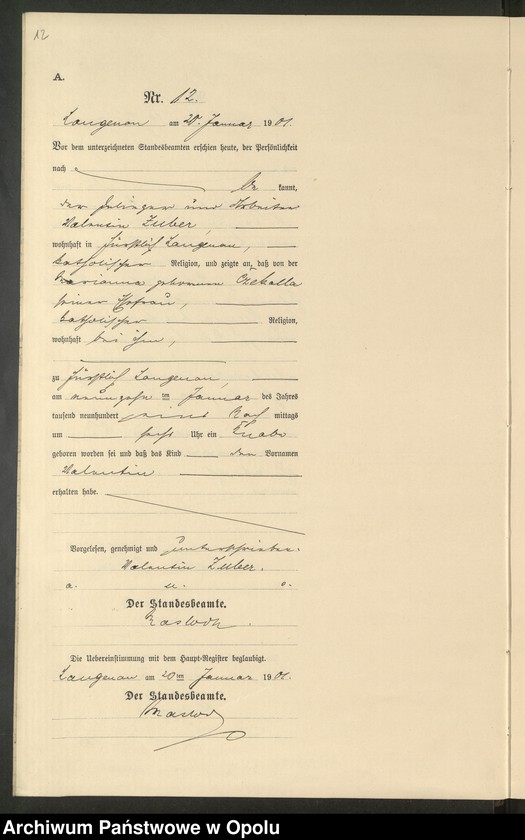 12
A.
Nr. 12.
Langenau am 20. Januar 1901.
Vor dem unterzeichneten Standesbeamten erschien heute, der Persönlichkeit
nach
kannt,
der und Arbeiter
Valentin Zuber,
wohnhaft in Fürstlich Langenau,
katholischer Religion, und zeigte an, daß von der
Marianna geborenen Czekalla
seiner Ehefrau,
katholischer Religion,
wohnhaft bei ihm,
zu Fürstlich Langenau,
am neunzehn ten Januar des Jahres
tausend neunhundert eins Nach mittags
um sechs Uhr ein Knabe
geboren worden sei und daß das Kind den Vornamen
Valentin
erhalten habe.
Vorgelesen, genehmigt und unterschrieben.
Valentin Zuber.
a. u. s.
Der Standesbeamte.
Die Uebereinstimmung mit dem Haupt-Register beglaubigt.
Langenau am 20ten Januar 1901.
Der Standesbeamte.
Archiwum Państwowe w Opolu